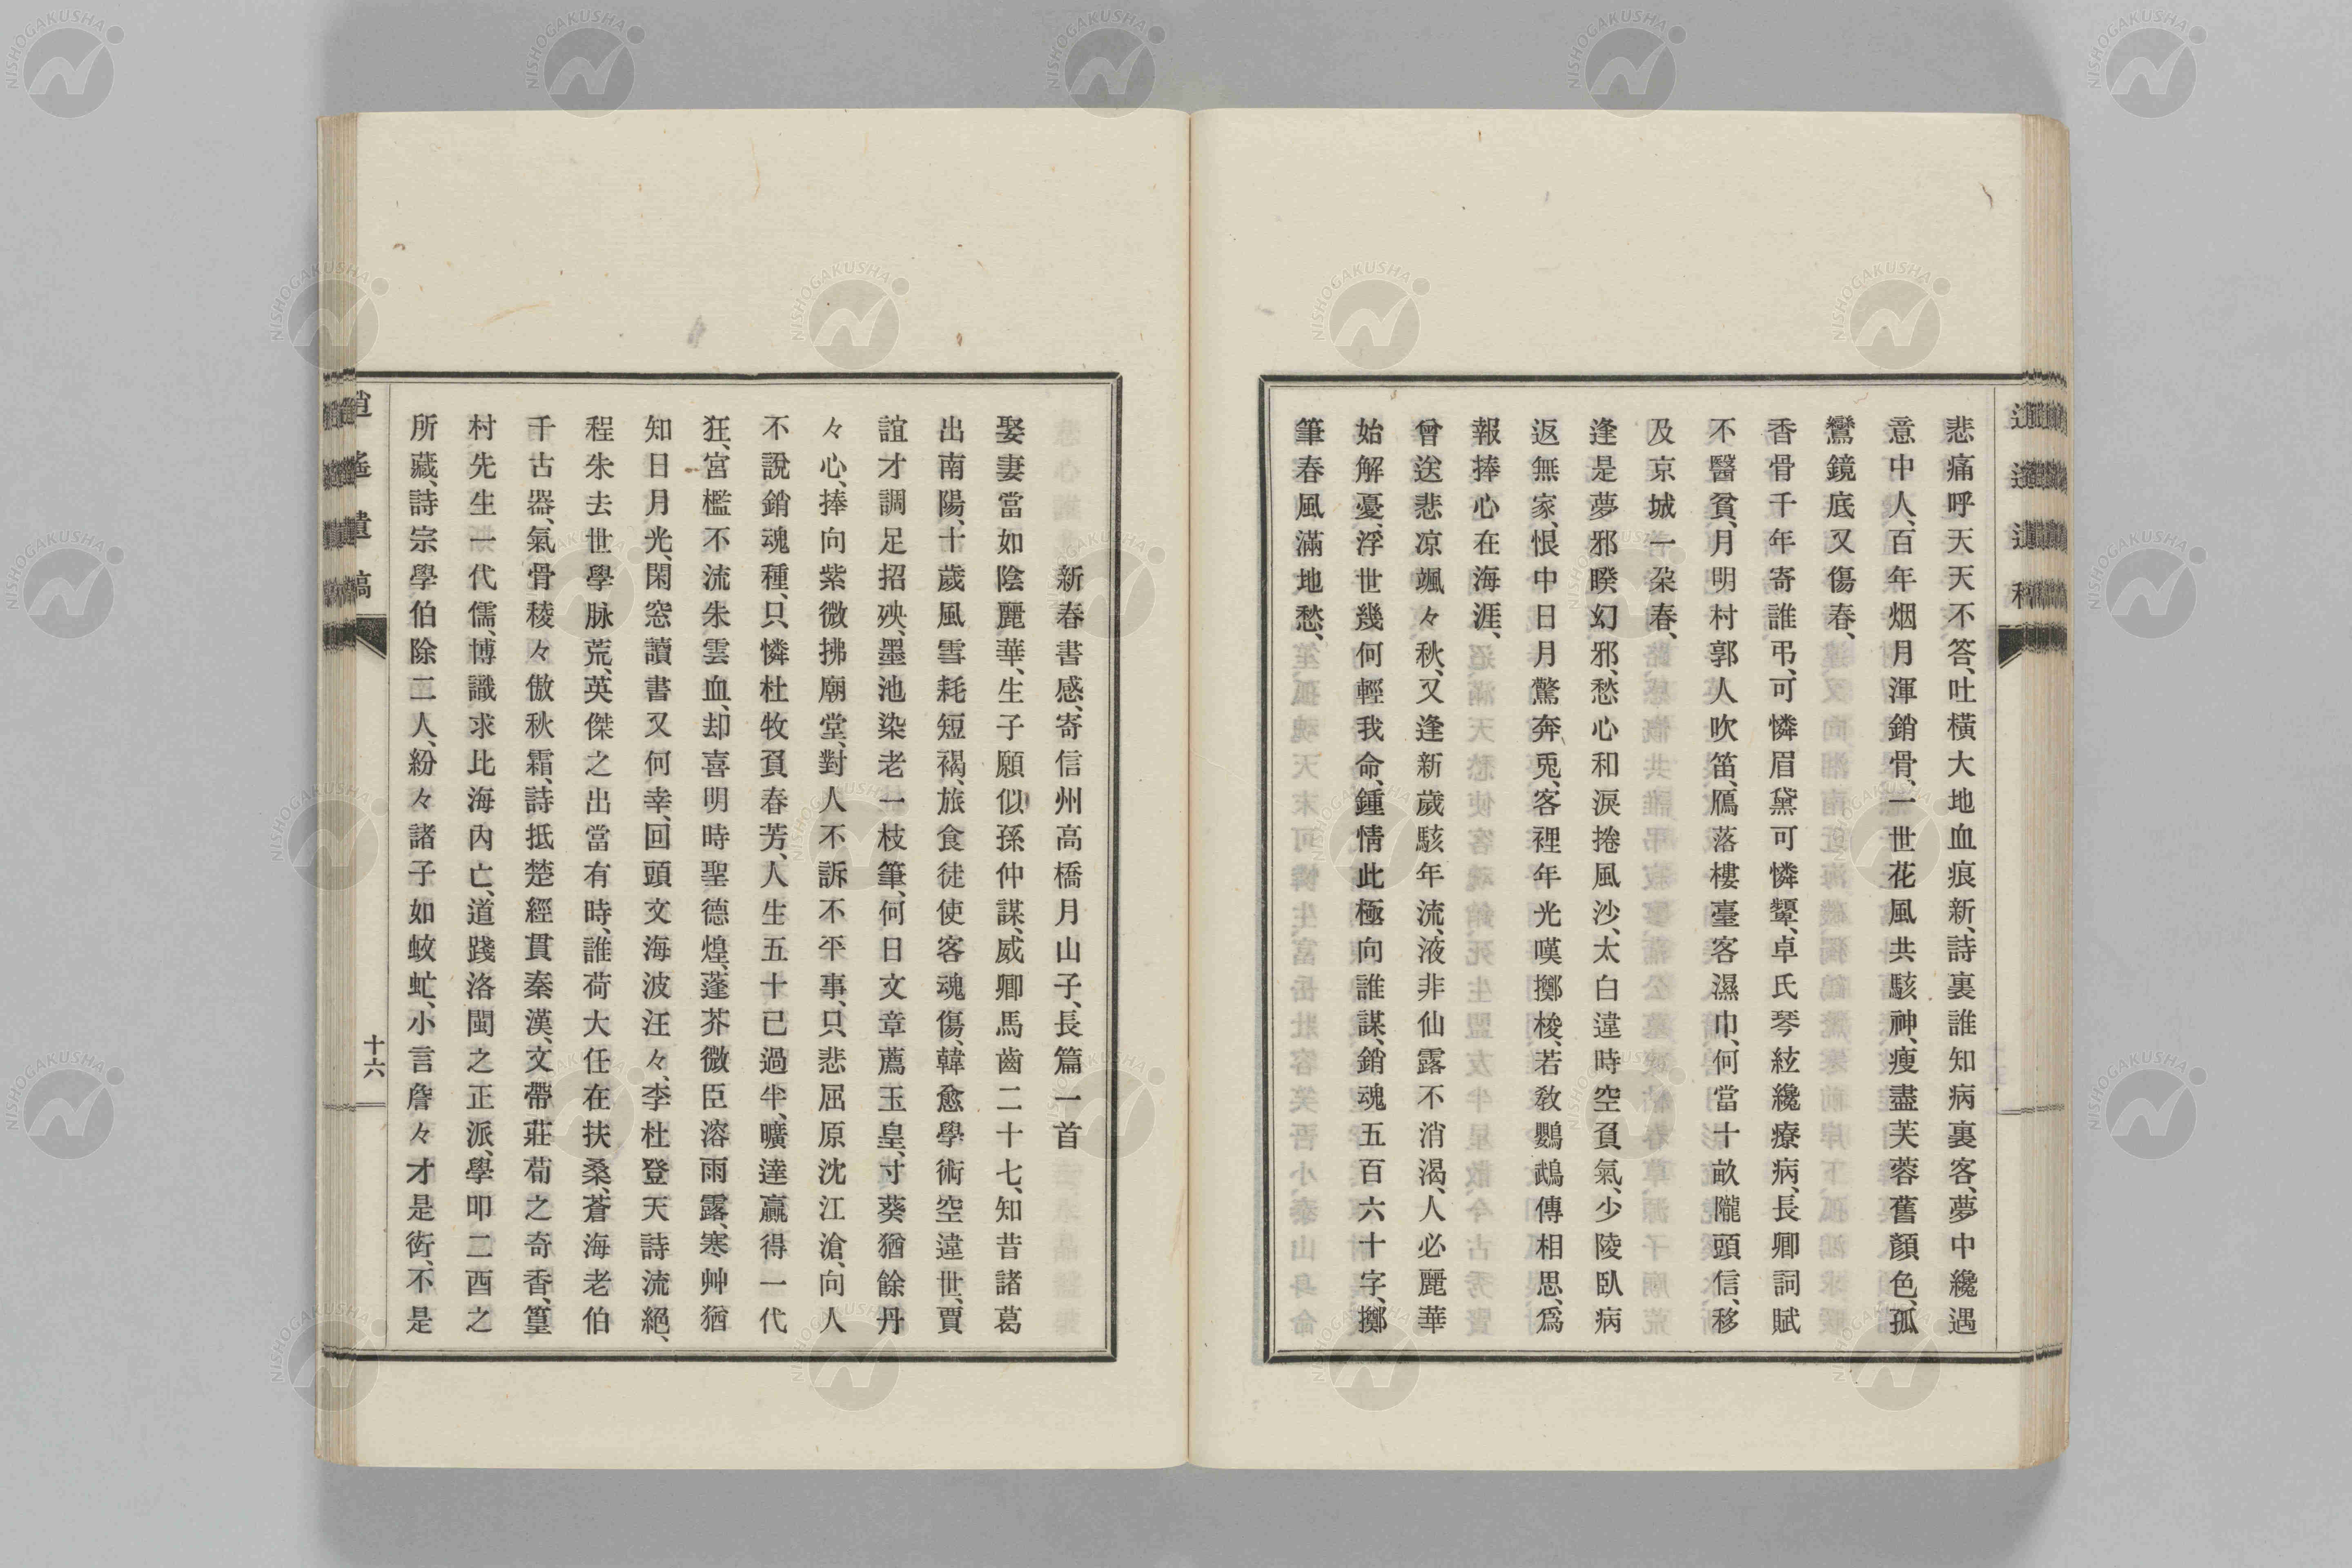 悲痛呼天天不答、吐橫大地血痕新、詩裏誰知病裏客、夢中纔遇
意中人、百年烟月渾銷骨、一世花風共駭神、瘦盡芙蓉舊顏色、孤
鸞鏡底又傷春、
香骨千年寄誰弔、可憐眉黛可憐顰、卓氏琴絃纔療病、長卿詞賦
不醫貧、月明村郭人吹笛、鴈落樓臺客濕巾、何當十畝隴頭信、移
及京城一朶春、
逢是夢邪暌幻邪、愁心和淚捲風沙、太白違時空負氣、少陵臥病
返無家、恨中日月驚奔兎、客裡年光嘆擲梭、若敎鸚鵡傳相思、爲
報捧心在海涯、
曾送悲凉颯々秋、又逢新歲駭年流、液非仙露不消渴、人必麗華
始解憂、浮世幾何輕我命、鍾情此極向誰謀、銷魂五百六十字、擲
筆春風滿地愁、
新春書感、寄信州高橋月山子、長篇一首
娶妻當如陰麗華、生子願似孫仲謀、威卿馬齒二十七、知昔諸葛
出南陽、十歲風雪耗短褐、旅食徒使客魂傷、韓愈學術空違世、賈
誼才調足招殃、墨池染老一枝筆、何日文章薦玉皇、寸葵猶餘丹
々心、捧向紫微拂廟堂、對人不訴不平事、只悲屈原沈江滄、向人
不說銷魂種、只憐杜牧負春芳、人生五十已過半、曠達贏得一代
狂、宮檻不流朱雲血、却喜明時聖德煌、蓬芥微臣溶雨露、寒艸猶
知日月光、閑窓讀書又何幸、回頭文海波汪々、李杜登天詩流絕、
程朱去世學脉荒、英傑之出當有時、誰荷大任在扶桑、蒼海老伯
千古器、氣骨稜々傲秋霜、詩抵楚經貫秦漢、文帶莊荀之奇香、篁
村先生一代儒、博識求比海內亡、道踐洛閩之正派、學叩二酉之
所藏、詩宗學伯除二人、紛々諸子如蚊虻、小言詹々才是衒、不是
遺稿
十六